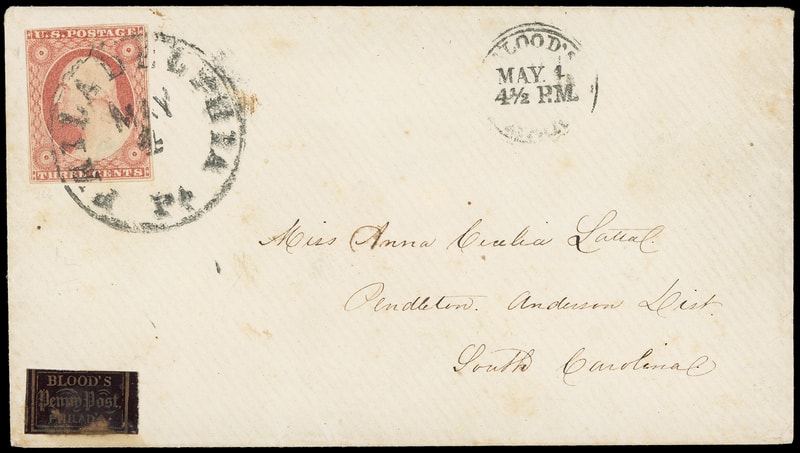 U.S. POSTAGE
THREE CENTS
PHILADELPHIA Pa
BLOOD'S
MAY. 1
4½ P.M.
Miss Anna Cecelia Latta.
Pendleton. Anderson Dist.
South Carolina
BLOOD'S
Penny Post,
PHILAD'A